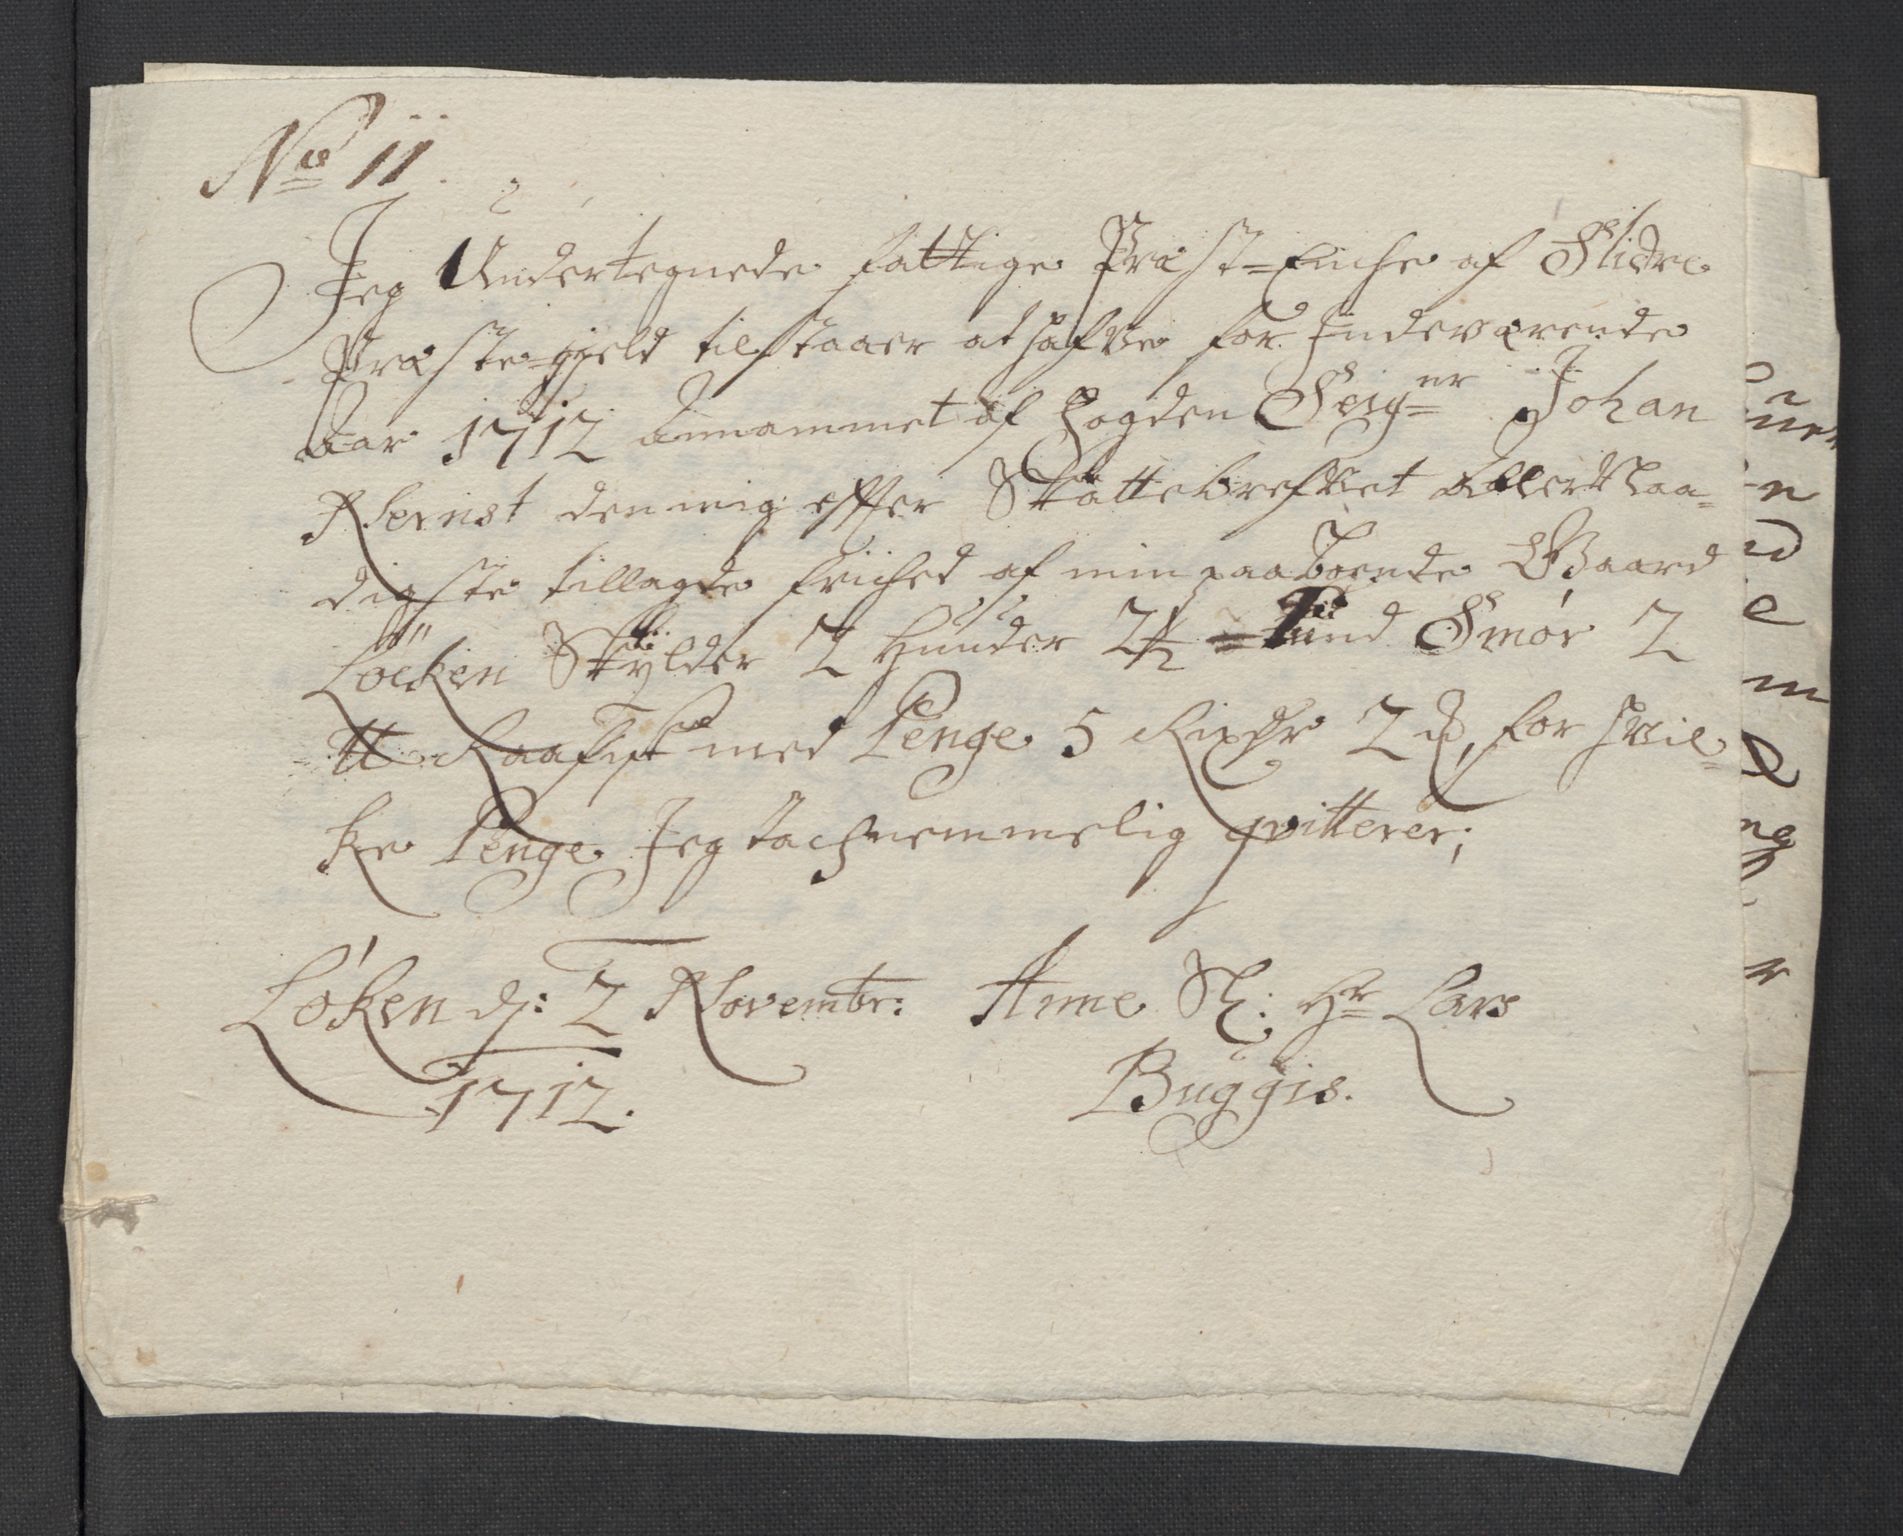 No 11
Jeg Undertegnede fattige Præst-Enche af Slidre
Præste-gjeld tilstaaer at hafve for Indeværende
Aar 1712 annammet af Fogden Seigner Johan
Nernst den mig efter Skattebrefvet Allernaa-
digste tillagde friehed af min paaboende Gaard
Løcken Skylder 2 Hunder 2½ Pund Smør 2
Raafisk med Penge 5 Rixdr 2 for hvil-
ke Penge Jeg tachnemmelig qvitterer;
Løken d: 2 Novembr: Anne Sl: Hr Lars
1712. Buggis.